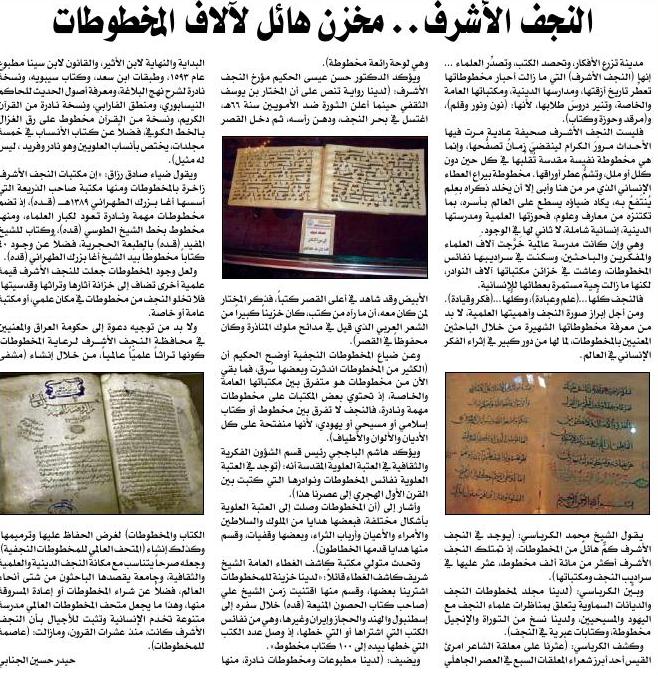 النجف الأشرف.. مخزن هائل لآلاف المخطوطات
مدينة تزرع الأفكار، وتحصد الكتب، وتصدّر العلماء ...
إنها (النجف الأشرف) التي ما زالت أحبار مخطوطاتها
تعطر تاريخ أزقتها، ومدارسها الدينية، ومكتباتها العامة
والخاصة، وتنير دروس طلابها، لأنها: (نون ونور وقلم)،
و(مرقد وحوزة وكتاب).
فليست النجف الأشرف صحيفة عادية مرت فيها
الأحداث مرور الكرام لينقضي زمان تصفّحها، وإنما
هي مخطوطة نفيسة مقدسة تقلبها في كل حين دون
كلل أو ملل، وتشمّ عطر أوراقها. مخطوطة بيراع العطاء
الإنساني الذي مر من هنا وأبى إلا أن يخلد ذكراه بعلم
يُنتفع به، يكاد ضياؤه يسطع على العالم بأسره، بما
تكتنزه من معارف وعلوم، فحوزتها العلمية ومدرستها
الدينية، إنسانية شاملة، لا ثاني لها في الوجود.
وهي وإن كانت مدرسة عالمية خرّجت آلاف العلماء
والمفكرين والباحثين، وسكنت في سراديبها نفائس
المخطوطات، وعاشت في خزائن مكتباتها آلاف النوادر،
لكنها ما زالت حية مستمرة بعطائها للإنسانية.
فالنجف كلها...(علم وعبادة)، وكلها...(فكر وقيادة).
ومن أجل إبراز صورة النجف وأهميتها العلمية، لا بد
من معرفة مخطوطاتها الشهيرة من خلال الباحثين
المعنيين بالمخطوطات، لما لها من دور كبير في إثراء الفكر
الإنساني في العالم.
يقول الشيخ محمد الكرباسي: (يوجد في النجف
الأشرف كمّ هائل من المخطوطات، إذ تمتلك النجف
الأشرف أكثر من مائة ألف مخطوط، عثر عليها في
سراديب النجف ومكتباتها).
وبين الكرباسي: (لدينا مجلد لمخطوطات النجف
والديانات السماوية يتعلق بمناظرات علماء النجف مع
اليهود والمسيحيين، ولدينا نسخ من التوراة والإنجيل
مخطوطة، وكتابات عبرية في النجف).
وكشف الكرباسي: (عثرنا على معلقة الشاعر امرئ
القيس أحد أبرز شعراء المعلقات السبع في العصر الجاهلي
وهي لوحة رائعة مخطوطة).
ويؤكد الدكتور حسن عيسى الحكيم مؤرخ النجف
الأشرف: (لدينا رواية تنص أن المختار بن يوسف
الثقفي حينما أعلن الثورة ضد الأمويين سنة ٦٦هـ،
اغتسل في بحر النجف، ودهن رأسه، ثم دخل القصر
الأبيض وقد شاهد في أعلى القصر كتباً، فذكر المختار
لمن كان معه، أن ما راه من كتب، كان خزيناً كبيرا من
الشعر العربي الذي قيل في مدائح ملوك المناذرة وكان
محفوظا في القصر).
وعن ضياع المخطوطات النجفية أوضح الحكيم أن
(الكثير من المخطوطات اندثرت وبعضها سُرق، فما بقي
الآن من مخطوطات هو متفرق بين مكتباتها العامة
والخاصة، إذ تحتوي بعض المكتبات على مخطوطات
مهمة ونادرة، فالنجف لا تفرق بين مخطوط أو كتاب
إسلامي أو مسيحي أو يهودي، لأنها منفتحة على كل
الأديان والألوان والأطياف).
ويؤكد هاشم الباججي رئيس قسم الشؤون الفكرية
والثقافية في العتبة العلوية المقدسة أنه: (توجد في العتبة
العلوية نفائس المخطوطات ونوادرها التي كتبت بين
القرن الأول الهجري إلى عصرنا هذا).
وأشار إلى (أن المخطوطات وصلت إلى العتبة العلوية
بأشكال مختلفة، فبعضها هدايا من الملوك والسلاطين
والأمراء والأعيان وأرباب الثراء، وبعضها وقفيات، وقسم
منها هدايا قدمها الخطاطون).
وتحدث متولي مكتبة كاشف الغطاء العامة الشيخ
شريف كاشف الغطاء قائلاً: «لدينا خزينة للمخطوطات
اشترينا بعضها، وقسم منها اقتنيت زمن الشيخ علي
(صاحب كتاب الحصون المنيعة (قده) خلال سفره إلى
إسطنبول والهند والحجاز وإيران وغيرها، وهي من نفائس
الكتب التي اشتراها أو التي خطها، إذ وصل عدد الكتب
التي خطها بيده إلى ١٠٠ كتاب مخطوط».
ويضيف: (لدينا مطبوعات ومخطوطات نادرة، منها
البداية والنهاية لابن الأثير، والقانون لابن سينا مطبوع
عام ١٥٩٣، وطبقات ابن سعد، وكتاب سيبويه، ونسخة
نادرة لشرح نهج البلاغة، ومعرفة أصول الحديث للحاكم
النيسابوري، ومنطق الفارابي، ونسخة نادرة من القرآن
الكريم، ونسخة من القرآن مخطوط على رق الغزال
بالخط الكوفي، فضلا عن كتاب الأنساب في خمسة
مجلدات، يختص بأنساب العلويين وهو نادر وفريد، ليس
له مثيل).
ويقول ضياء صادق رزاق: «إن مكتبات النجف الأشرف
زاخرة بالمخطوطات ومنها مكتبة صاحب الذريعة التي
أسسها أغا بزرك الطهراني ١٣٨٩هـ (قده)، إذ تضم
مخطوطات مهمة ونادرة تعود لكبار العلماء، ومنها
مخطوط بخط الشيخ الطوسي (قده)، وكتاب للشيخ
المفيد (قده) بالطبعة الحجرية، فضلا عن وجود ٤٠
كتابا مخطوطا بيد الشيخ أغا بزرك الطهراني (قده).
ولعل وجود المخطوطات جعلت للنجف الأشرف قيمة
علمية أخرى تضاف إلى خزانة آثارها وتراثها وقدسيتها،
فلا تخلو النجف من مخطوطات في مكان علمي، أو مكتبة
عامة أو خاصة.
ولا بد من توجيه دعوة إلى حكومة العراق والمعنيين
في محافظة النجف الأشرف لرعاية المخطوطات
كونها تراثاً علميًا عالمياً، من خلال إنشاء (مشفى
الكتاب والمخطوطات) لغرض الحفاظ عليها وترميمها،
وكذلك إنشاء (المتحف العالمي للمخطوطات النجفية)
وجعله صرحا يتناسب مع مكانة النجف الدينية والعلمية
والثقافية، وجامعة يقصدها الباحثون من شتى أنحاء
العالم، فضلا عن شراء المخطوطات أو إعادة المسروقة
منها، وهذا ما يجعل متحف المخطوطات العالمي مدرسة
متنوعة تخدم الإنسانية وتثبت للأجيال بأن النجف
الأشرف كانت، منذ عشرات القرون، ومازالت: (عاصمة
للمخطوطات).
حيدر حسين الجنابي